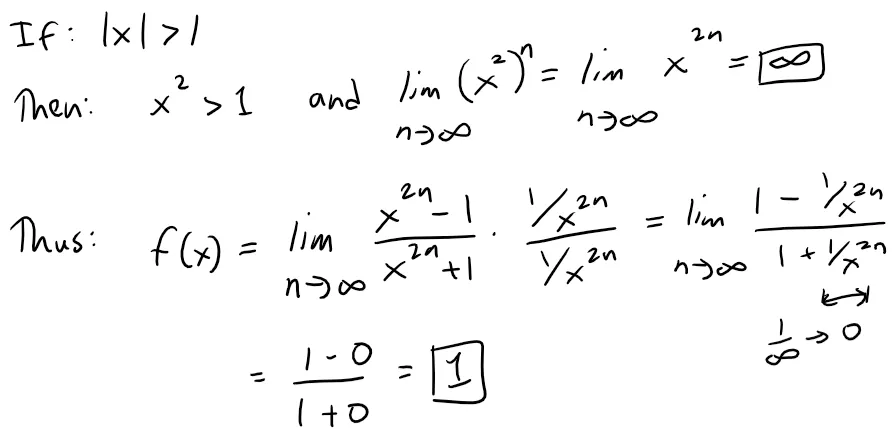 If: |x| > 1
Then: x² > 1 and lim n→∞ (x²)ⁿ = lim n→∞ x²ⁿ = ∞
Thus: f(x) = lim n→∞ (x²ⁿ - 1)/(x²ⁿ + 1) · (1/x²ⁿ)/(1/x²ⁿ) = lim n→∞ (1 - 1/x²ⁿ)/(1 + 1/x²ⁿ)
1/∞ → 0
= (1 - 0)/(1 + 0) = 1